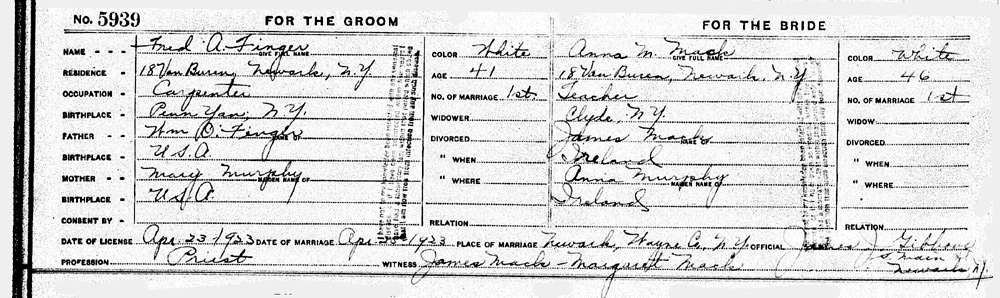 No. 5939
FOR THE GROOM
NAME - - - Fred A. Finger
GIVE FULL NAME
RESIDENCE - 18 Van Buren, Newark, N.Y.
OCCUPATION - Carpenter
BIRTHPLACE - Penn Yan, N.Y.
FATHER - - Wm D. Finger
NAME OF
BIRTHPLACE - U.S.A.
MOTHER - Mary Murphy
MAIDEN NAME OF
BIRTHPLACE - U.S.A.
CONSENT BY -
COLOR White
AGE 41
NO. OF MARRIAGE 1st
WIDOWER
DIVORCED
" WHEN
" WHERE
RELATION
FOR THE BRIDE
Anna M. Mack
GIVE FULL NAME
18 Van Buren, Newark, N.Y.
Teacher
Clyde, N.Y.
James Mack
NAME OF
Ireland
Anna Murphy
MAIDEN NAME OF
Ireland
COLOR White
AGE 46
NO. OF MARRIAGE 1st
WIDOW
DIVORCED
" WHEN
" WHERE
RELATION
DATE OF LICENSE Apr. 23-1933 DATE OF MARRIAGE Apr-25-1933 PLACE OF MARRIAGE Newark, Wayne Co., N.Y. OFFICIAL James J.
S. Main St
Newark, N.Y.
PROFESSION Priest WITNESS James Mack - Margaret Mack